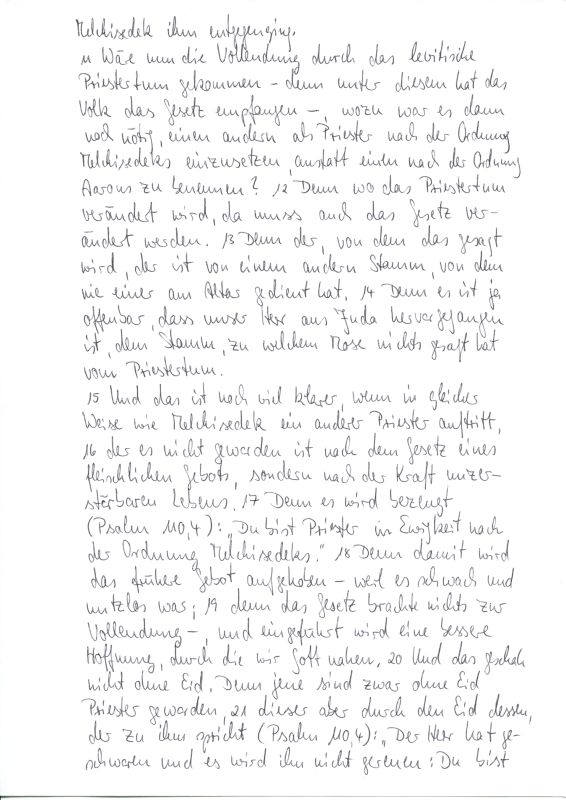 Melchisedek ihm entgegenging.
11 Wäre nun die Vollendung durch das levitische
Priestertum gekommen – denn unter diesem hat das
Volk das Gesetz empfangen –, wozu war es dann
noch nötig, einen andern als Priester nach der Ordnung
Melchisedeks einzusetzen, anstatt einen nach der Ordnung
Aarons zu benennen? 12 Denn wo das Priestertum
verändert wird, da muss auch das Gesetz ver-
ändert werden. 13 Denn der, von dem das gesagt
wird, der ist von einem andern Stamm, von dem
nie einer am Altar gedient hat. 14 Denn es ist ja
offenbar, dass unser Herr aus Juda hervorgegangen
ist, dem Stamm, zu welchem Mose nichts gesagt hat
vom Priestertum.
15 Und das ist noch viel klarer, wenn in gleicher
Weise wie Melchisedek ein anderer Priester auftritt,
16 der es nicht geworden ist nach dem Gesetz eines
fleischlichen Gebots, sondern nach der Kraft unzer-
störbaren Lebens. 17 Denn es wird bezeugt
(Psalm 110,4): „Du bist Priester in Ewigkeit nach
der Ordnung Melchisedeks." 18 Denn damit wird
das frühere Gebot aufgehoben – weil es schwach und
nutzlos war; 19 denn das Gesetz brachte nichts zur
Vollendung –, und eingeführt wird eine bessere
Hoffnung, durch die wir Gott nahen. 20 Und das geschah
nicht ohne Eid. Denn jene sind zwar ohne Eid
Priester geworden, 21 dieser aber durch den Eid dessen,
der zu ihm spricht (Psalm 110,4): „Der Herr hat ge-
schworen und es wird ihn nicht gereuen: Du bist